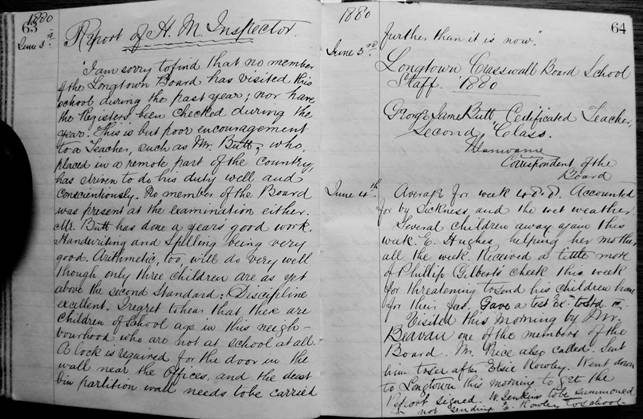 1880
63
June 3rd
Report of H. M. Inspector.
"I am sorry to find that no member
of the Longtown Board has visited this
school during the past year; nor have
the Registers been checked during the
year. This is but poor encouragement
to a Teacher, such as Mr. Butt, who,
placed in a remote part of the country,
has striven to do his duty well and
conscientiously. No member of the Board
was present at the examination either.
Mr. Butt has done a years good work.
Handwriting and Spelling being very
good. Arithmetic, too, will do very well
though only three children are as yet
above the second Standard: Discipline
excellent. I regret to hear that there are
children of school age in this neigh-
bourhood who are not at school at all.
A lock is required for the door in the
wall near the Offices, and the
partition wall needs to be carried
1880
64
June 3rd
further than it is now."
Longtown Crasswall Board School
Staff. 1880
George James Butt, Certificated Teacher,
Second Class.
Correspondent of the
Board
June 4th
Average for week Accounted
for by sickness and the wet weather
Several children away again this
week. E. Hughes helping her mother
all the week. Received a little more
of Phillip Gilbert's cheek this week
for threatening to send his children home
for their fees. Gave a
Visited this morning by Mr.
Beavan one of the members of the
Board. Mr. Price also called. Sent
him to see after Elsie Rowley. Went down
to Longtown this morning to get the
Report signed. W. Jenkins to be summoned
not sending to school.